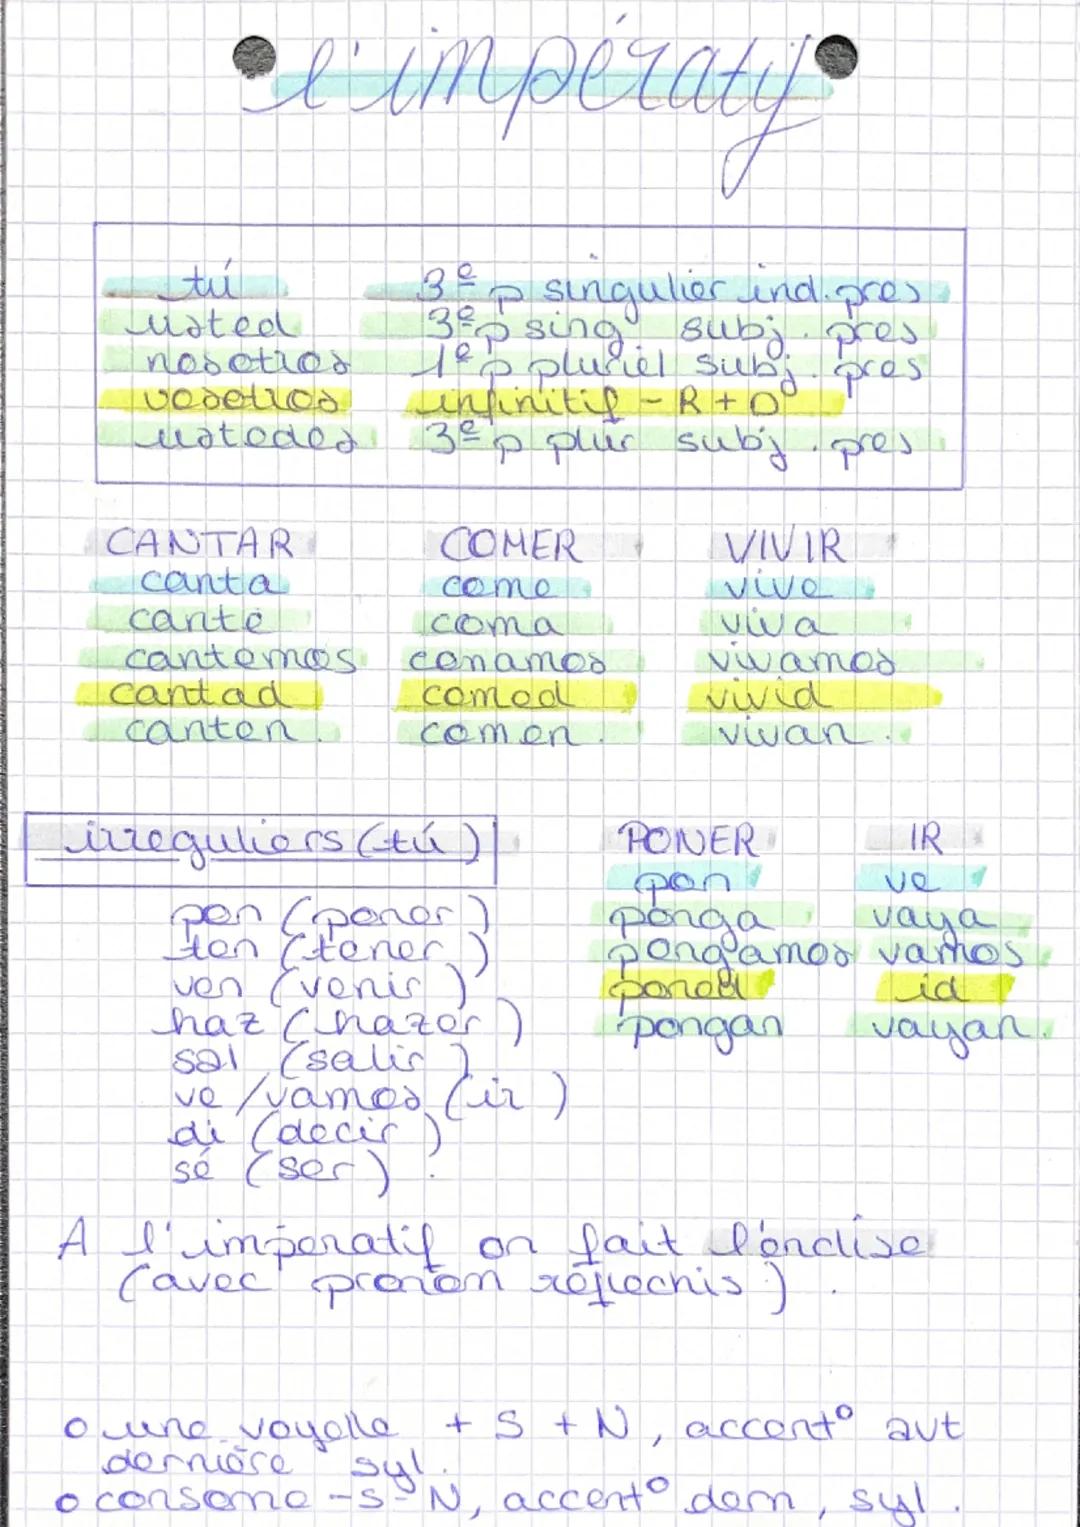 l'impératif
tú 3e p singulier ind. pres
usted 3e p sing subj. pres
nosotros 1e p pluriel subj. pres
vosotros infinitif - R + D
ustedes 3e p plur subj. pres
CANTAR COMER VIVIR
canta come vive
cante coma viva
cantemos conamos vivamos
cantad comed vivid
canten. comen. vivan.
irreguliers (tú) PONER IR
pon ve
pon (poner) ponga vaya
ten (tener) pongamos vamos
ven (venir) poned id
haz (hazer) pongan vayan.
sal (salir)
ve / vamos (ir)
di (decir)
sé (ser).
A l'imperatif on fait l'endise
(avec pronom réflechis).
o une voyelle + S + N, accent° avt
dernière syl.
o consonne -S-N, accent° dern, syl.